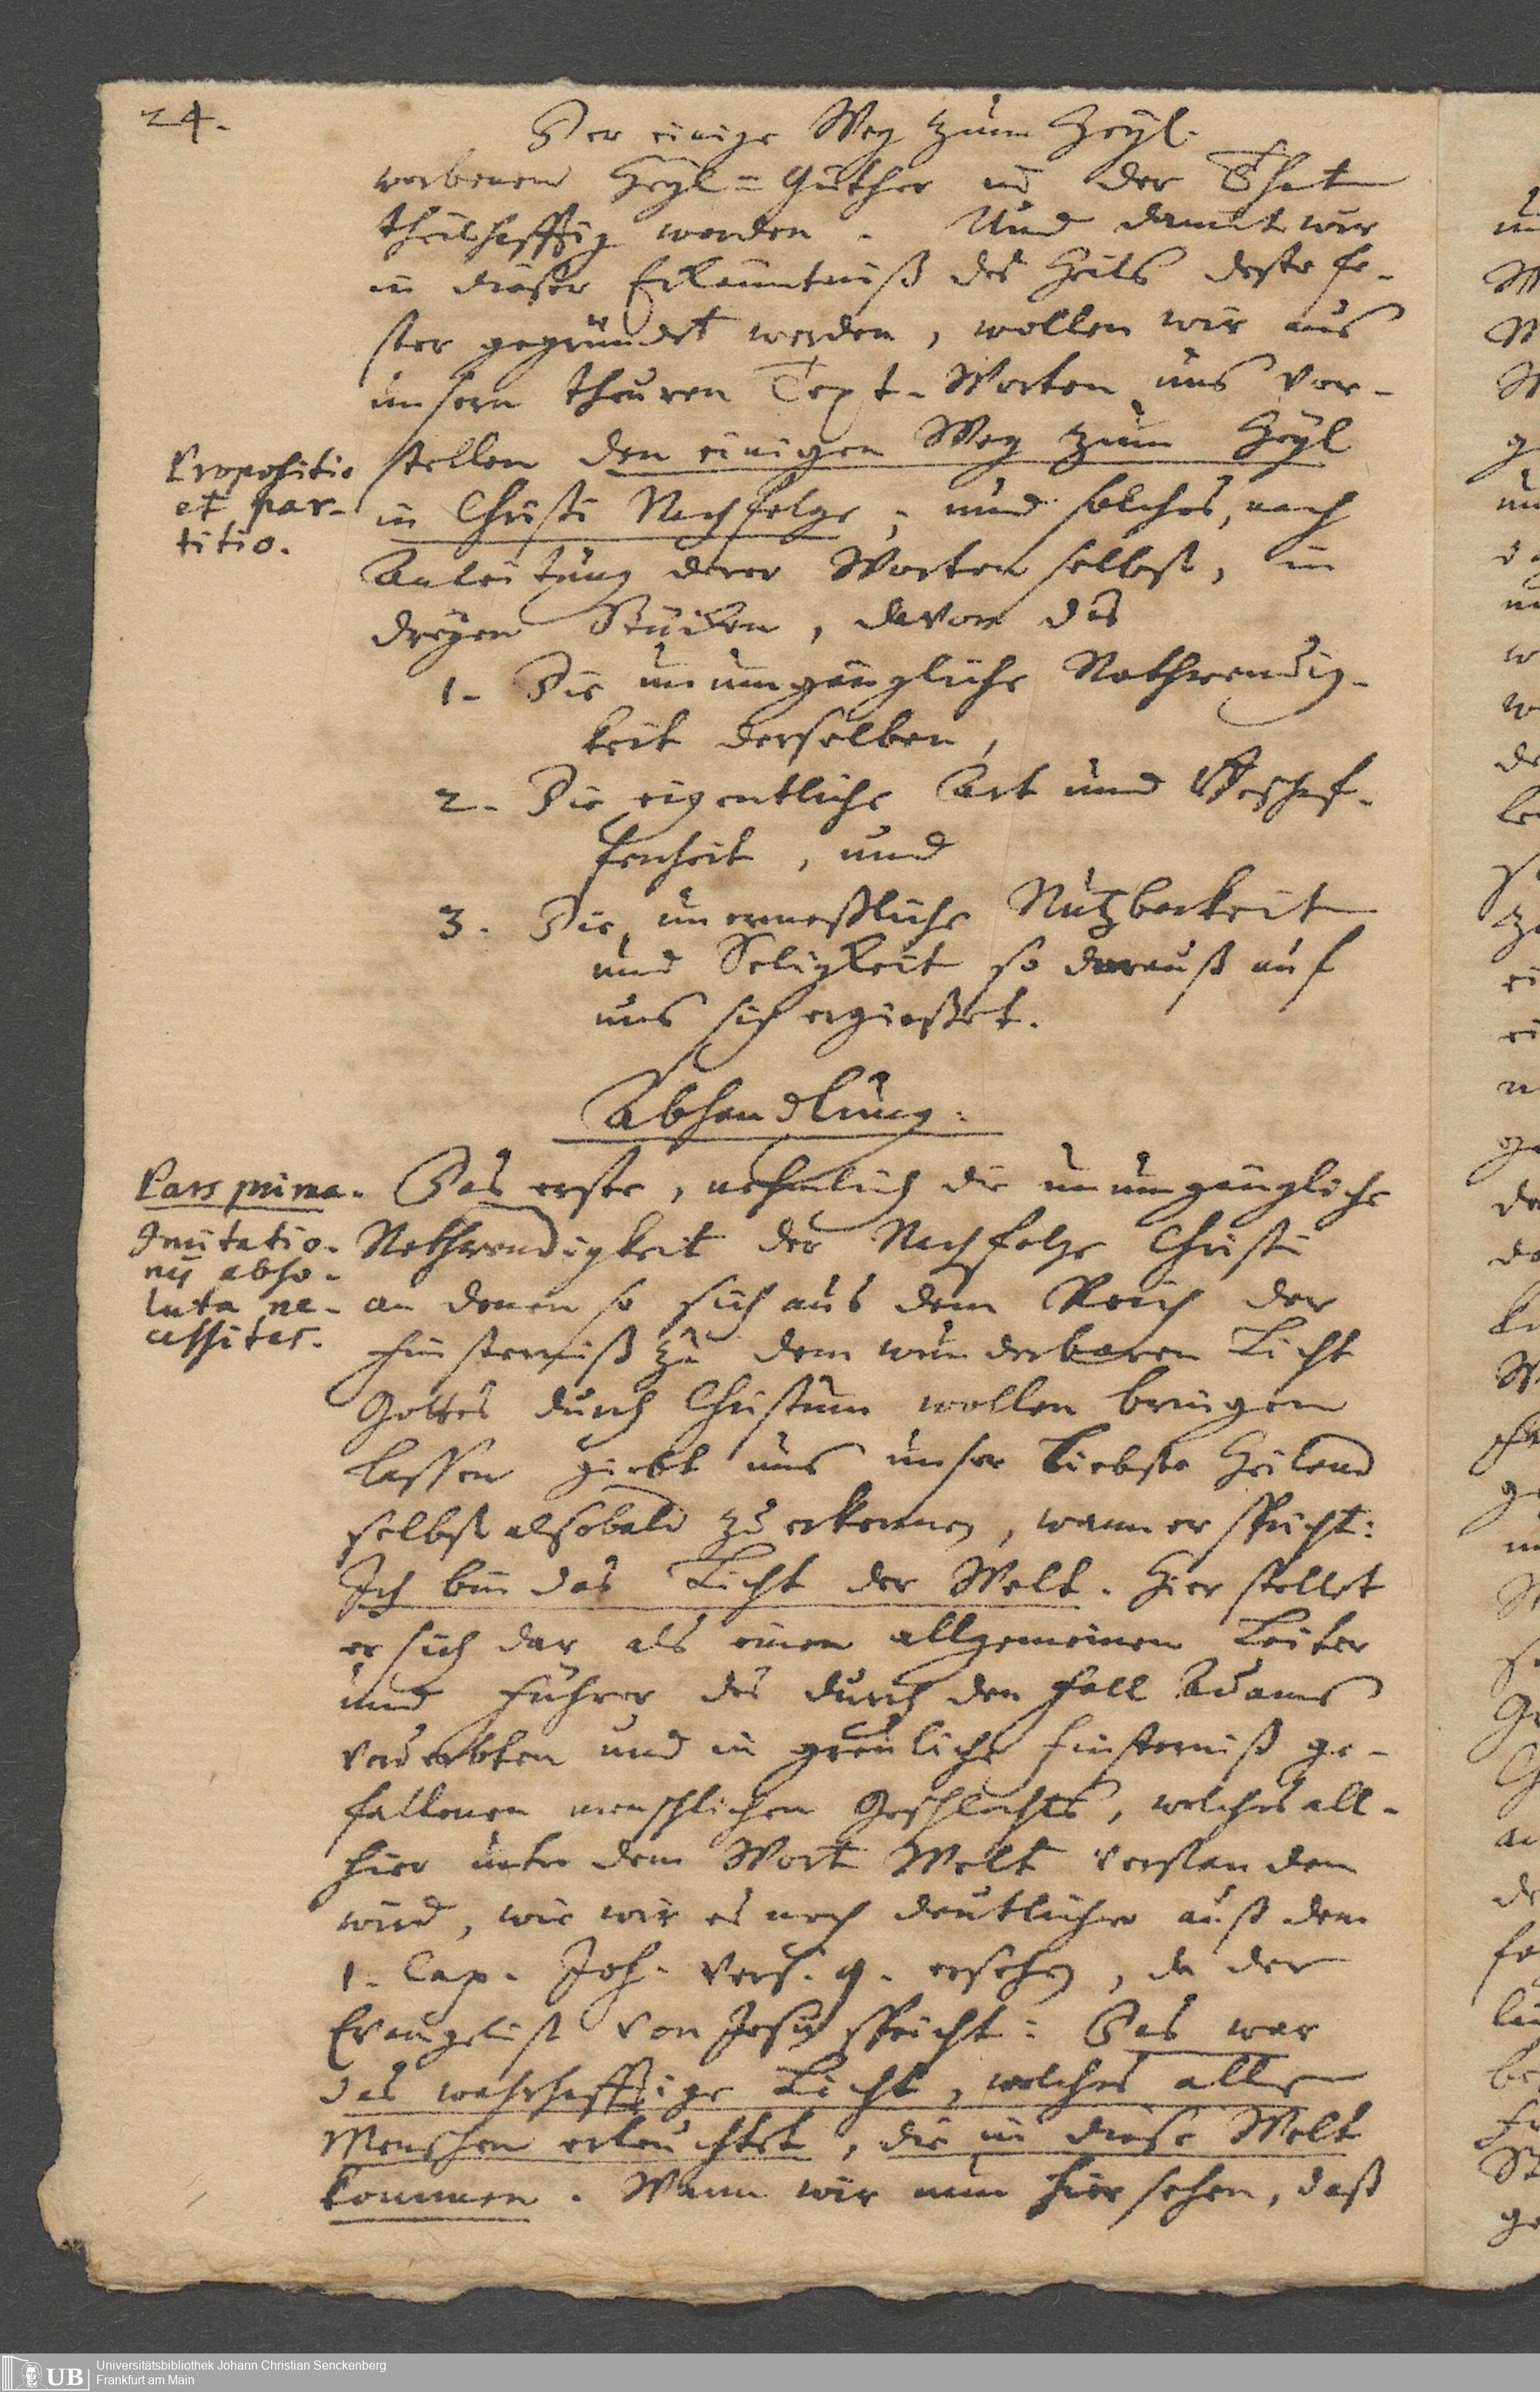 24.
Der einige Weg zum Heyl.
worbenen Heyl-Güther in der That
theilhafftig werden. Und damit wir
in dieser Erkänntniß des Heils desto fe-
ster gegründet werden, wollen wir aus
unsern theuren Text-Worten uns vor-
stellen den einigen Weg zum Heyl
in Christi Nachfolge; und solches, nach
Anleitung derer Worten selbst, in
dreyen Stücken, davon das
Propositio
et par-
titio.
1. Die unumgängliche Nothwendig-
keit derselben,
2. Die eigentliche Art und Beschaf-
fenheit, und
3. Die unermeßliche Nutzbarkeit
und Seligkeit so darauß auf
uns sich ergießet.
Abhandlung.
Pars prima.
Imitatio-
nis abso-
luta ne-
cessitas.
Das erste, nehmlich die unumgängliche
Nothwendigkeit der Nachfolge Christi
an denen so sich aus dem Reich der
Finsterniß zu dem wunderbaren Licht
Gottes durch Christum wollen bringen
lassen giebt uns unser liebste Heiland
selbst alsobald zu erkennen, wann er spricht:
Ich bin das Licht der Welt. Hier stellet
er sich dar als einen allgemeinen Leiter
und Führer des durch den Fall Adams
verderbten und in greuliche Finsterniß ge-
fallenen menschlichen Geschlechts, welches all-
hier unter dem Wort Welt verstanden
wird, wie wir es noch deutlicher auß dem
1. Cap. Joh. vers. 9. ersehen, da der
Evangelist von Jesu spricht: Das war
das wahrhafftige Licht, welches alle
Menschen erleuchtet, die in diese Welt
kommen. Wann wir nun hier sehen, daß
Universitätsbibliothek Johann Christian Senckenberg
Frankfurt am Main
UB